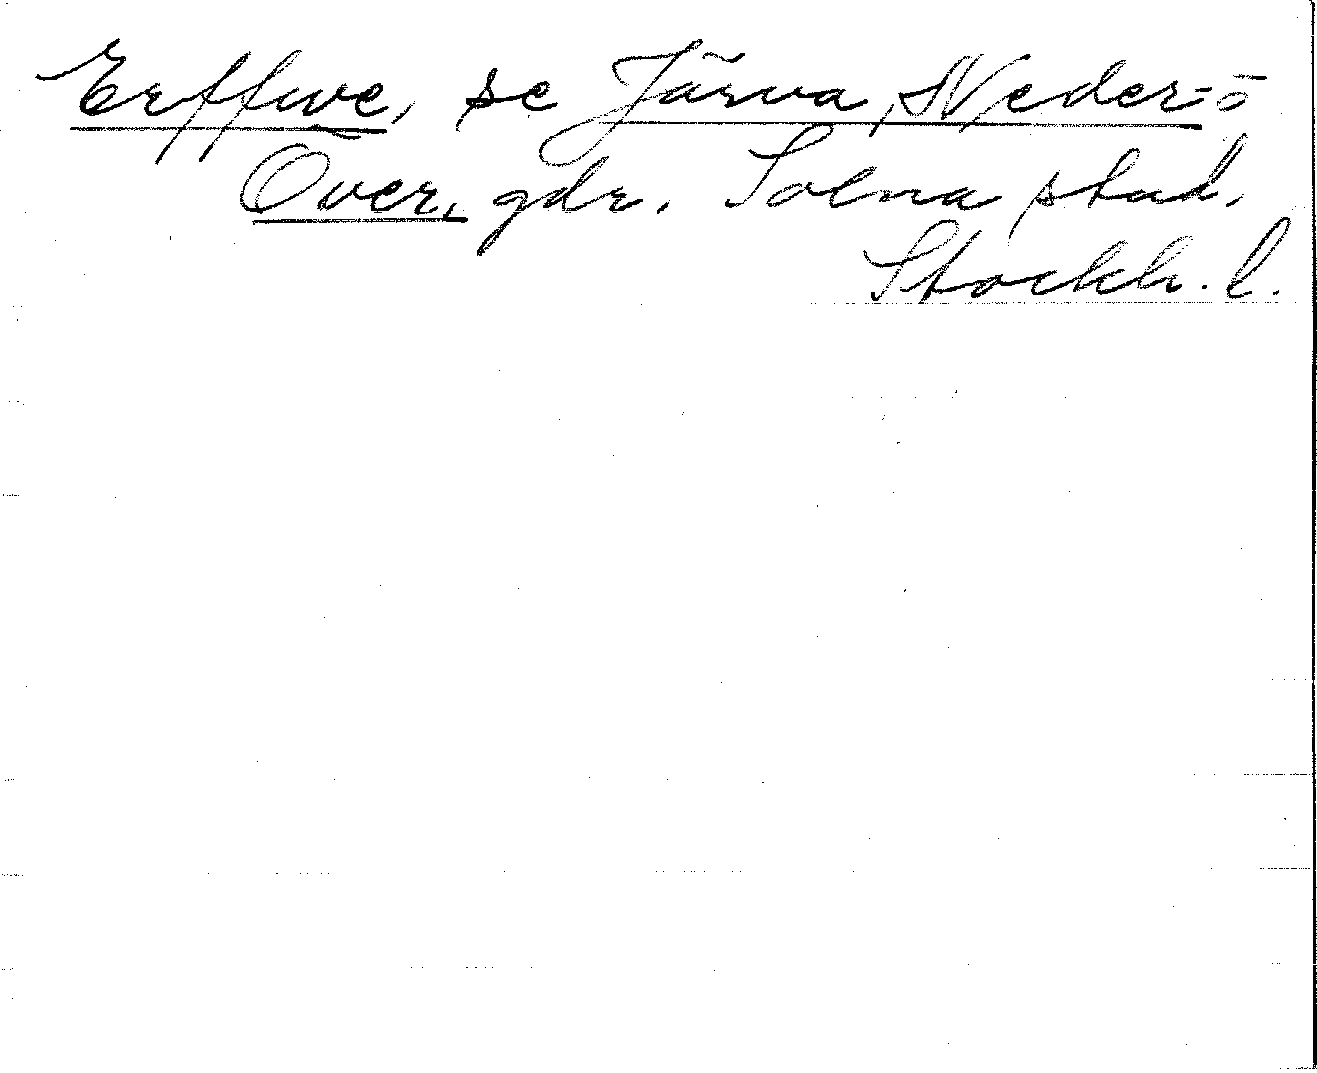 Erffwe, se Järva, Neder- o
Över, gdr. Solna stad.
Stockh. l.